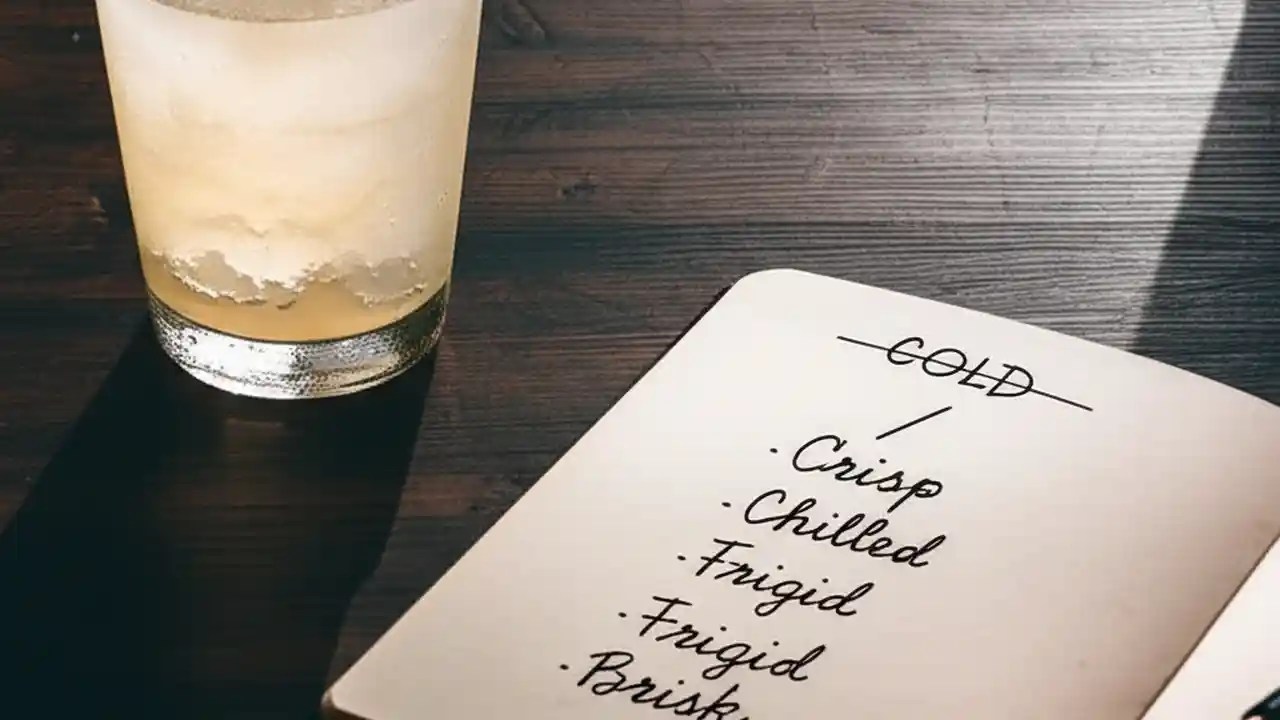 COLD
· Crisp
· Chilled
· Frigid
· Frigid
· Brisk